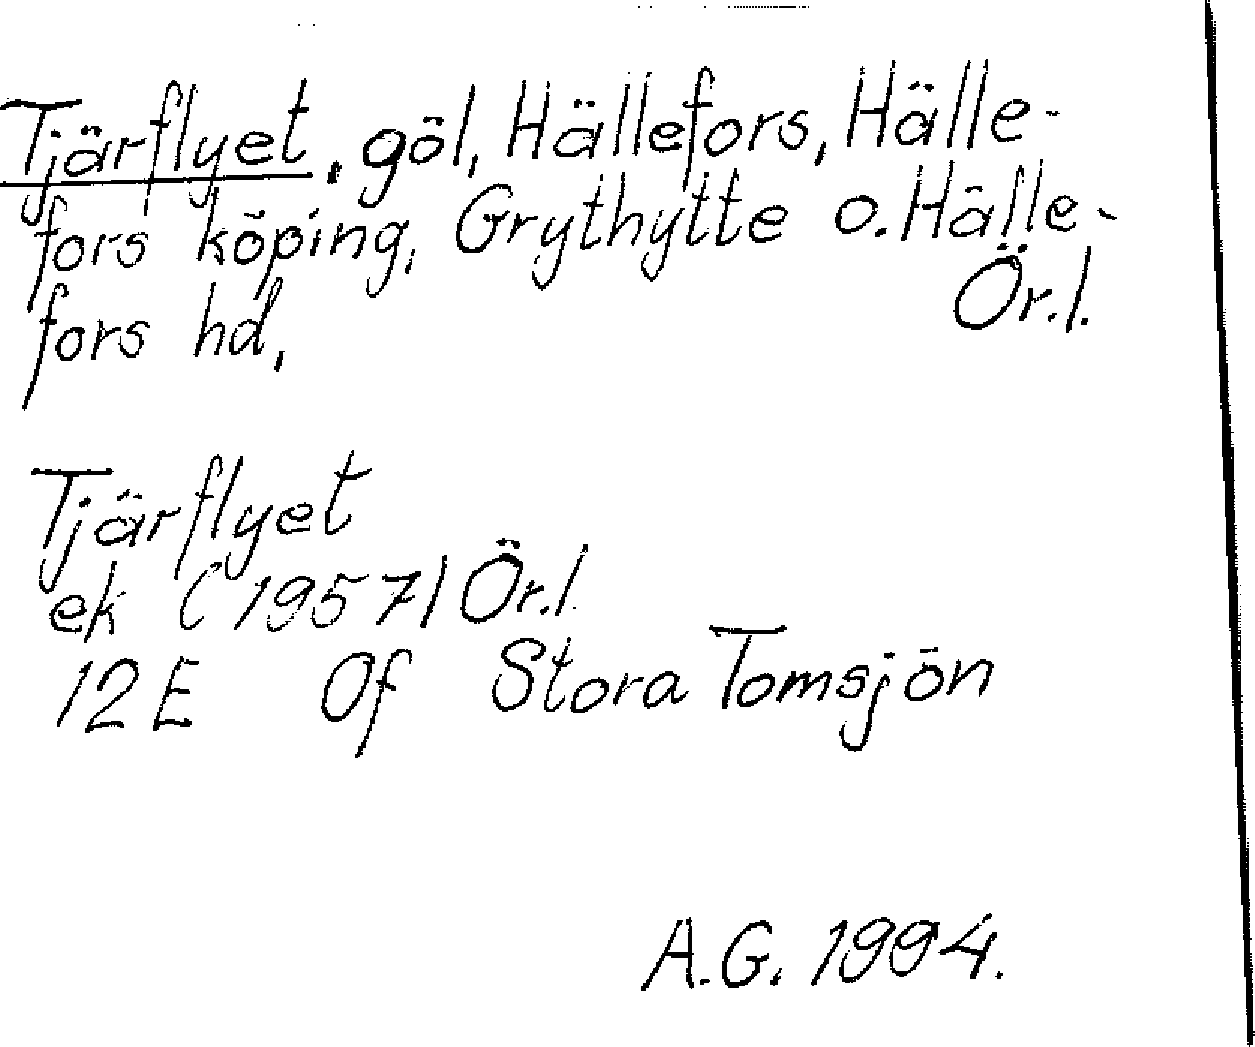 Tjärflyet, göl, Hällefors, Hälle-
fors köping, Grythytte o. Hälle-
fors hd, Ör.l.
Tjärflyet
ek (1957) Ör.l.
12E 0f Stora Tomsjön
A.G. 1994.